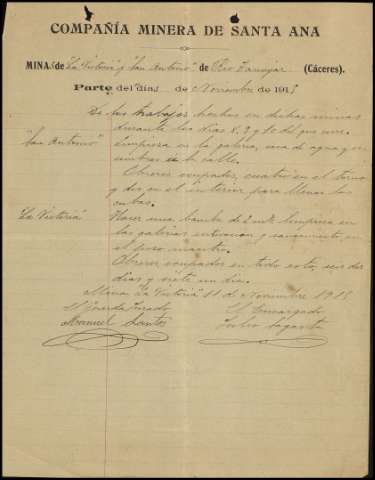 COMPAÑÍA MINERA DE SANTA ANA
MINAS de "La Victoria" y "San Antonio" de (Cáceres).
Parte del días de Noviembre de 191
De los trabajos hechos en dichas minas
durante los días 8, 9 y 10 del que corre.
"San Antonio" limpieza en la galería, saca de agua y
en la calle.
Obreros ocupados, cuatro en el torno
y dos en el interior para llenar las
cubas.
"La Victoria" Hacer una de 2 mts. limpieza en
las galerías y saneamiento en
el pozo maestro.
Obreros ocupados en todo esto, seis dos
días y siete un día.
Mina "La Victoria" 11 de Noviembre 191
El Guarda Jurado El Encargado
Manuel Santos Sagasta